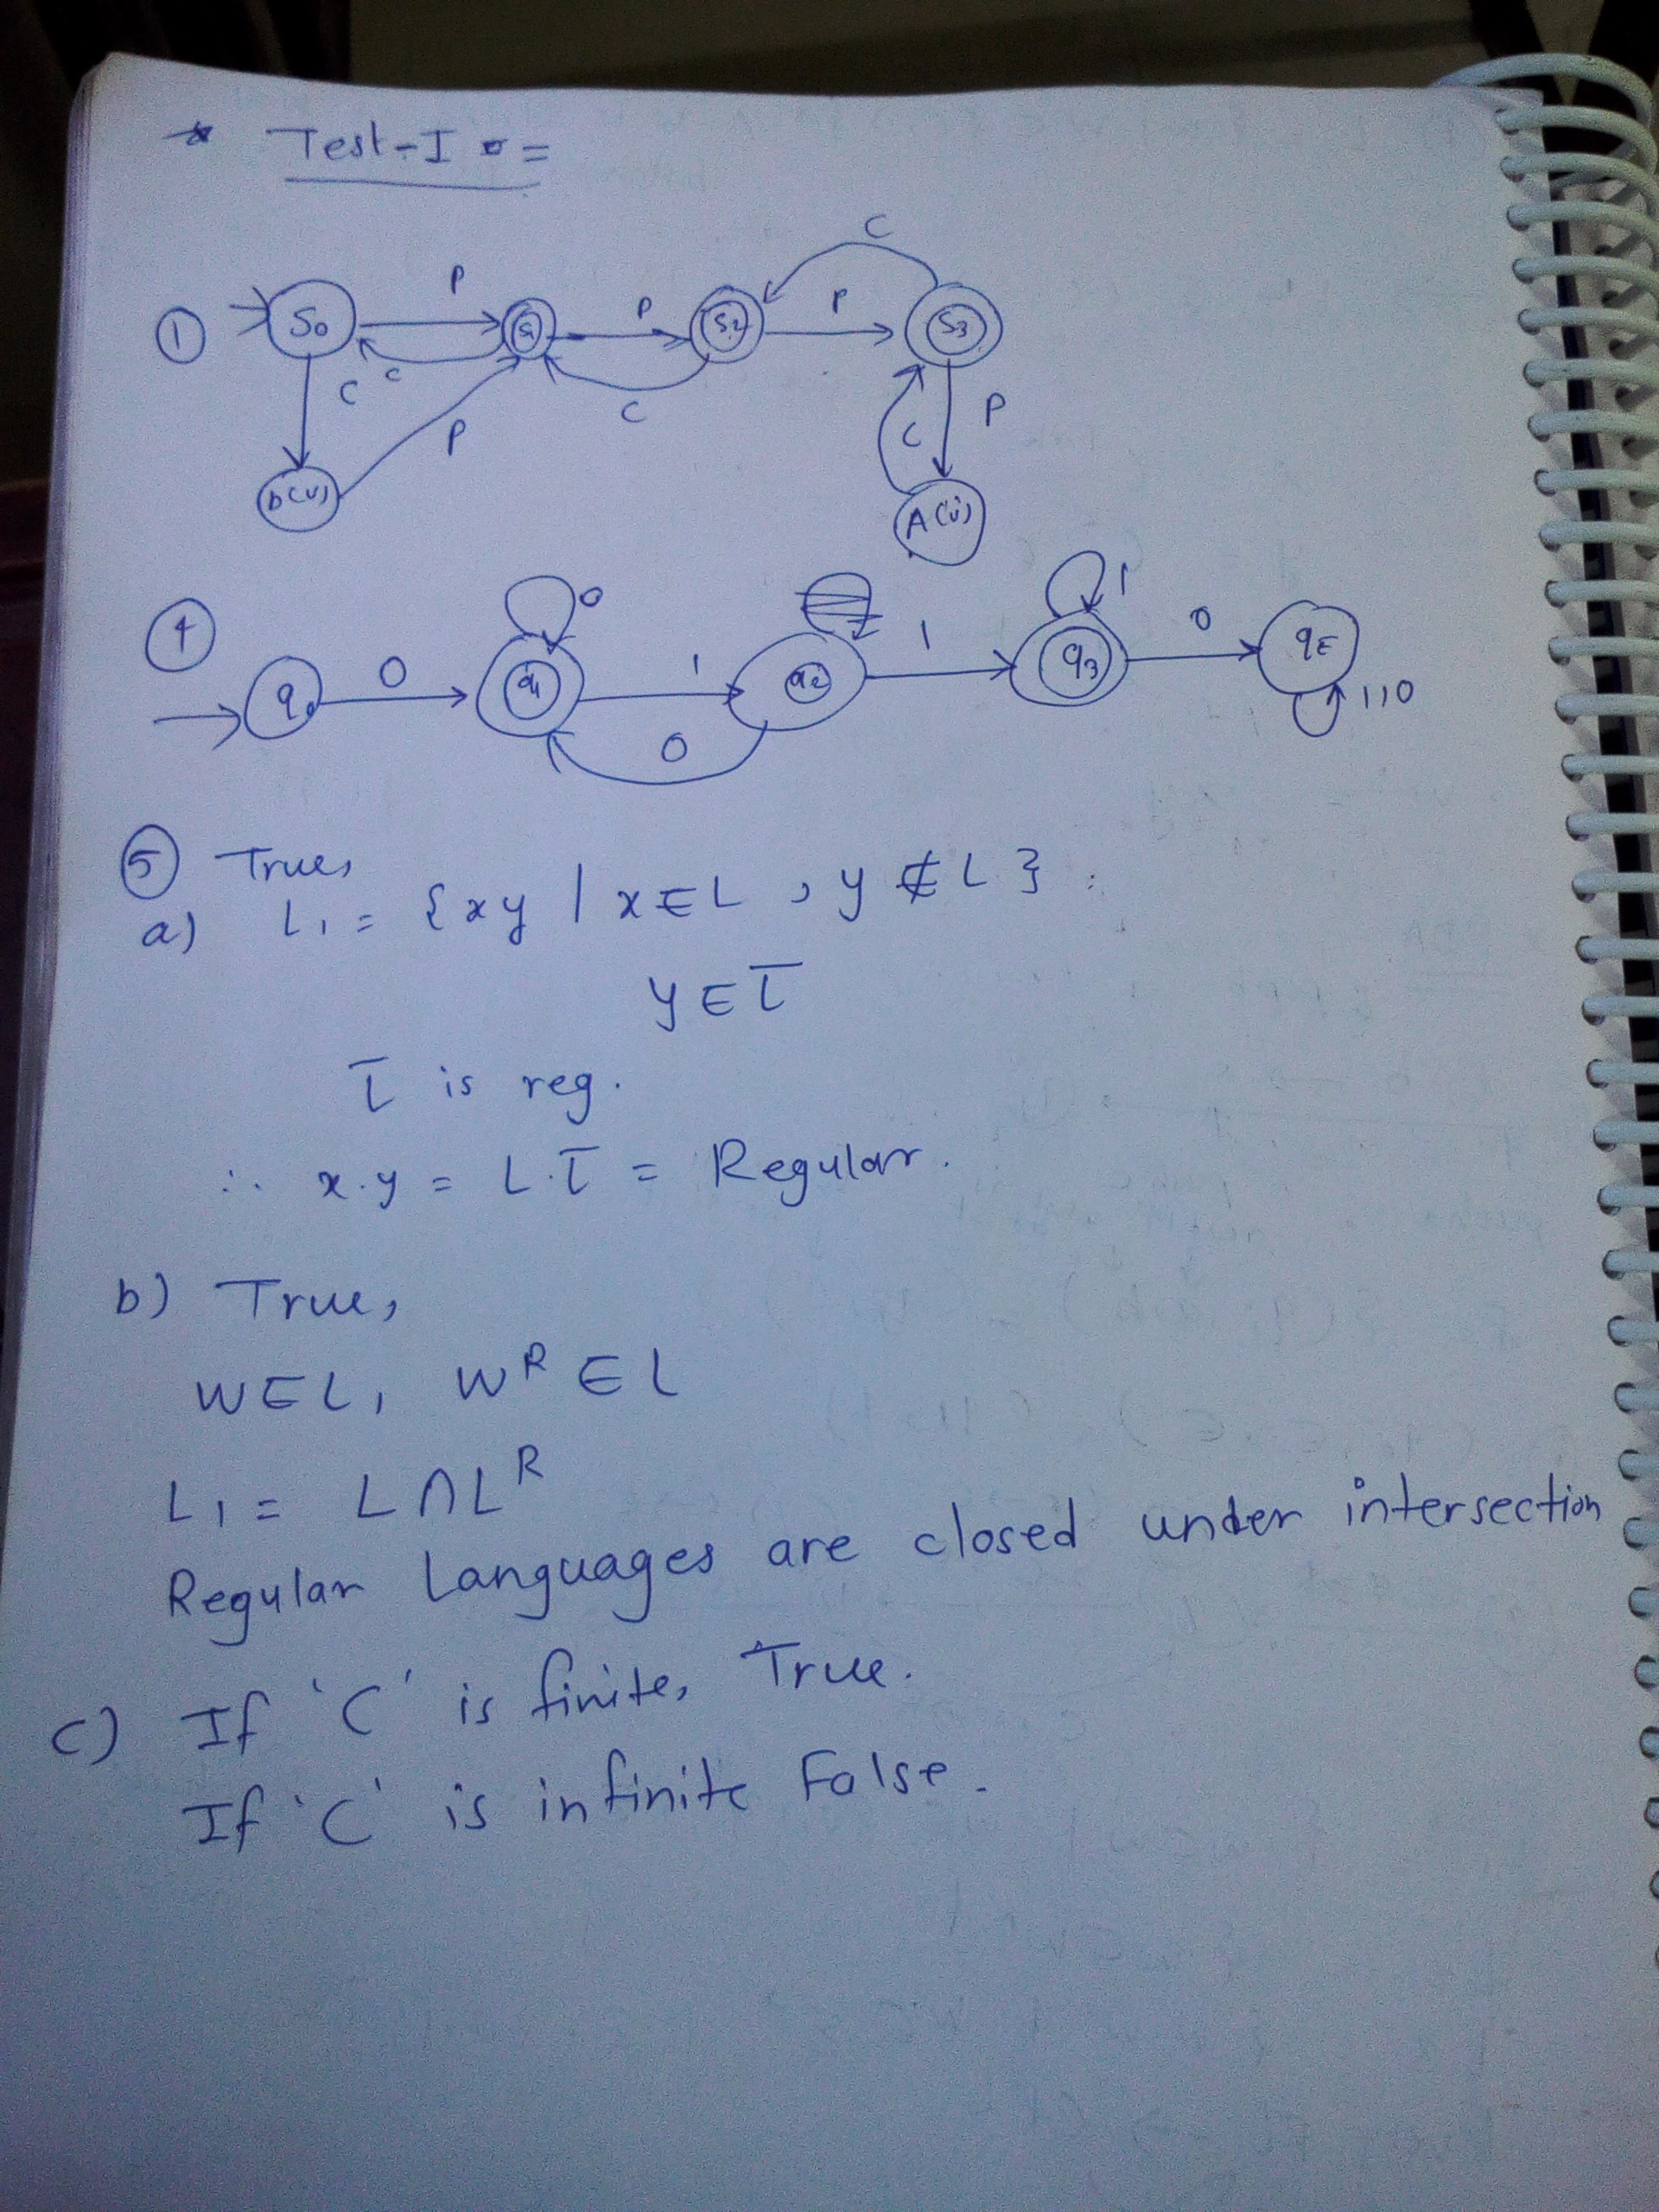 * Test-I :=
P P P C
① S0 S1 S2 S3
C C P C C P
b(u) A(i)
④ 0 1 1
q0 0 q1 1 q2 1 q3 0 qE
0 1,0
⑤ True,
a) L1 = {xy | x∈L , y∉L}
y∈L̅
L̅ is reg.
∴ x.y = L.L̅ = Regular.
b) True,
W∈L, W^R ∈ L
L1 = L∩L^R
Regular Languages are closed under intersection
c) If 'C' is finite, True.
If 'C' is infinite False.